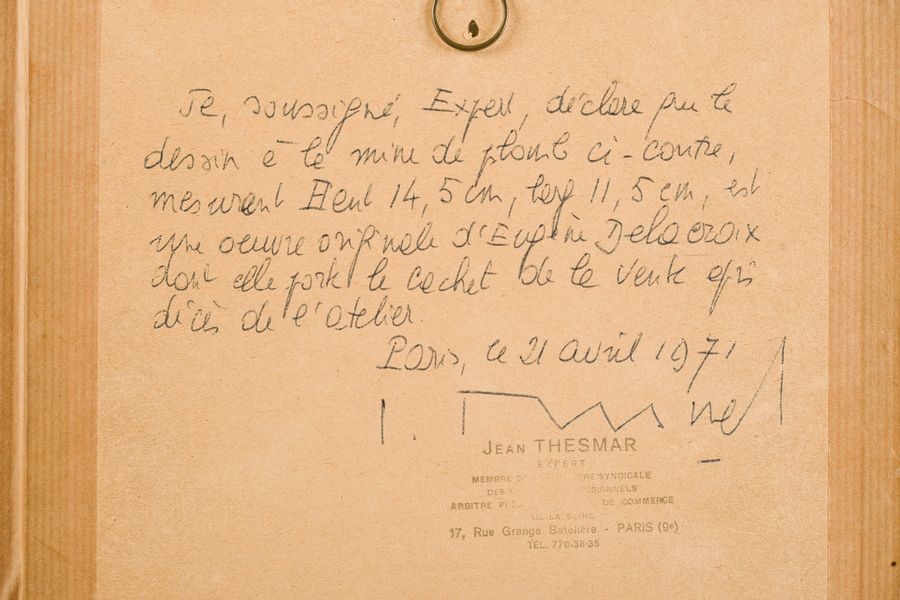 Je, soussigné, Expert, déclare que le
dessin à la mine de plomb ci-contre,
mesurant Haut 14,5 cm, larg 11,5 cm, est
une oeuvre originale d'Eugène Delacroix
dont elle porte le cachet de la vente après
décès de l'atelier.
Paris, le 21 avril 1971
JEAN THESMAR
EXPERT
MEMBRE SYNDICALE
DES
ARBITRE DE COMMERCE
DE LA SEINE
17, Rue Grange Batelière - PARIS (9e)
TEL. 770-38-35